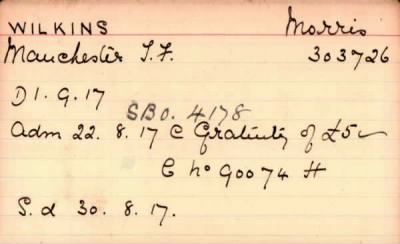 WILKINS Morris
Manchester T.F. 303726
D 1. 9. 17
SBO. 4178
Adm 22. 8. 17 C Gratuity of £5
C No 90074 H
S. d 30. 8. 17.